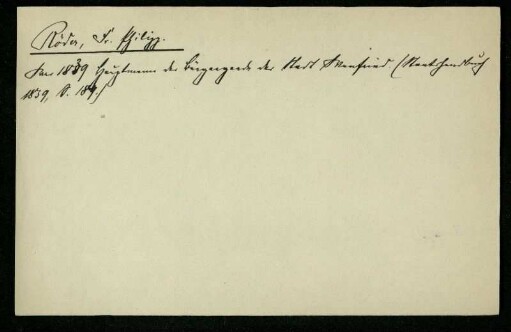 Röder, Fr. Philipp.
War 1839 Hauptmann der Bürgergarde der Stadt Wanfried (Staatshandbuch
1839, S. 189.)